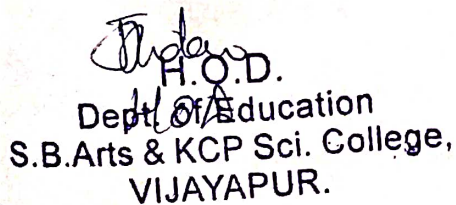 H.O.D.
Dept. of Education
S.B.Arts & KCP Sci. College,
VIJAYAPUR.